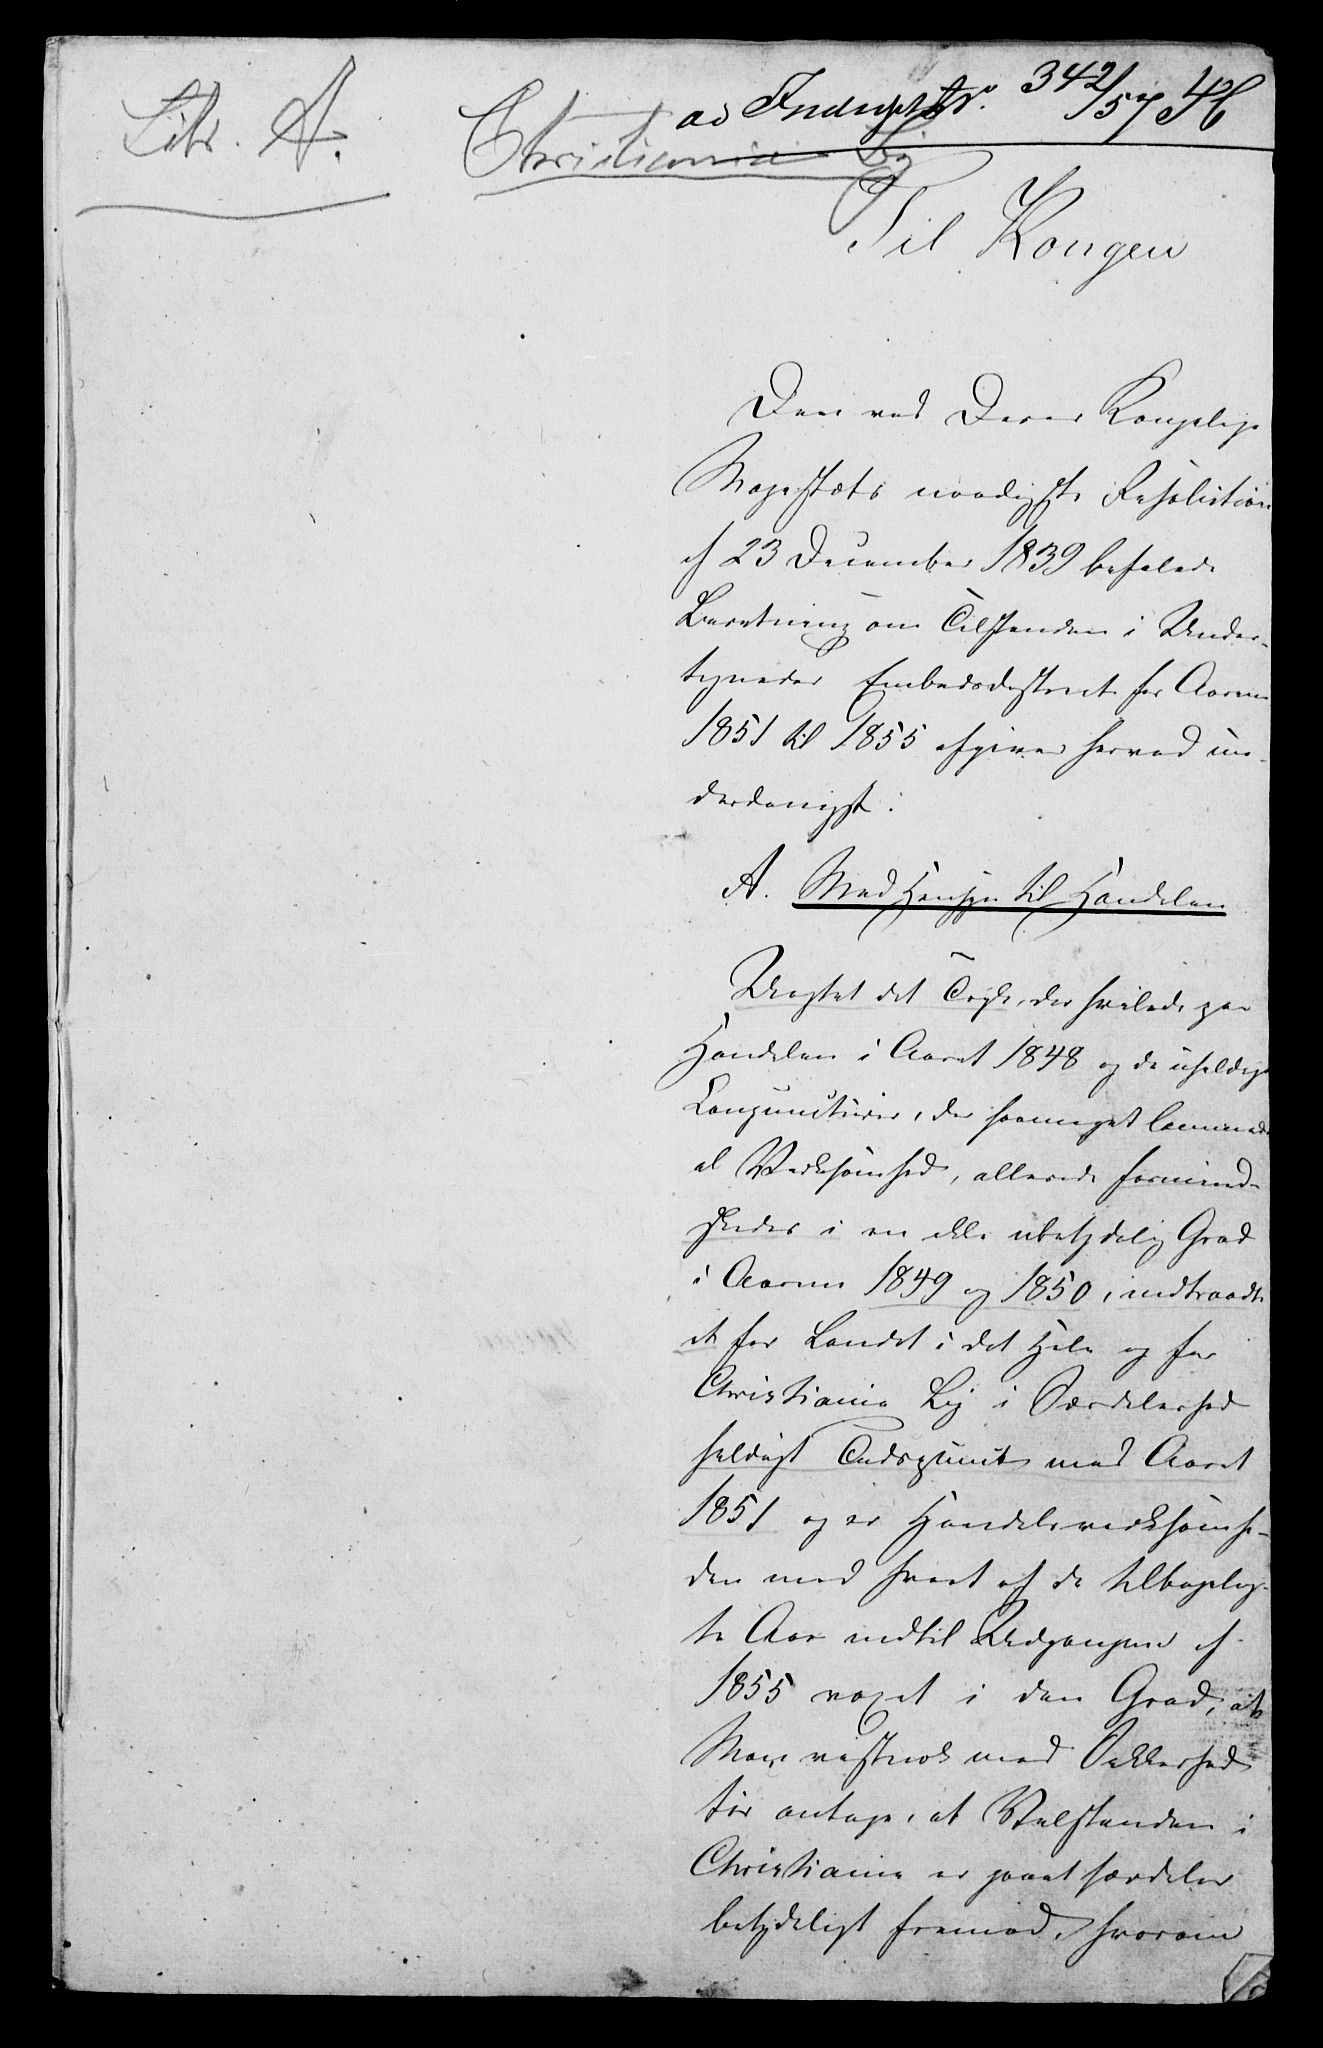 Litr. A.
Christiania By
ad Indregistr. 342/57 H
Til Kongen
Den ved Deres Kongelige
Majestæts naadigste Resolution
af 23 December 1839 befalede
Beretning om Tilstanden i Under-
tegnedes Embedsdistrict for Aarene
1851 til 1855 afgives herved un-
derdanigst:
A. Med Hensyn til Handelen
Uagtet det Tryk, der hvilede paa
Handelen i Aaret 1848 og de uheldige
Conjuncturer, der saameget lammede
al Virksomhed, allerede formind-
skedes i en ikke ubetydelig Grad
i Aarene 1849 og 1850, indtraadte
et for Landet i det Hele og for
Christiania By i Særdeleshed
heldigt Tidspunct med Aaret
1851 og er Handelsvirksomhe-
den med hvert af de tilbagelag-
te Aar indtil Udgangen af
1855 voxet i den Grad, at
Man vistnok med Sikkerhed
tør antage, at Velstanden i
Christiania er gaaet særdeles
betydeligt fremad, hvorom